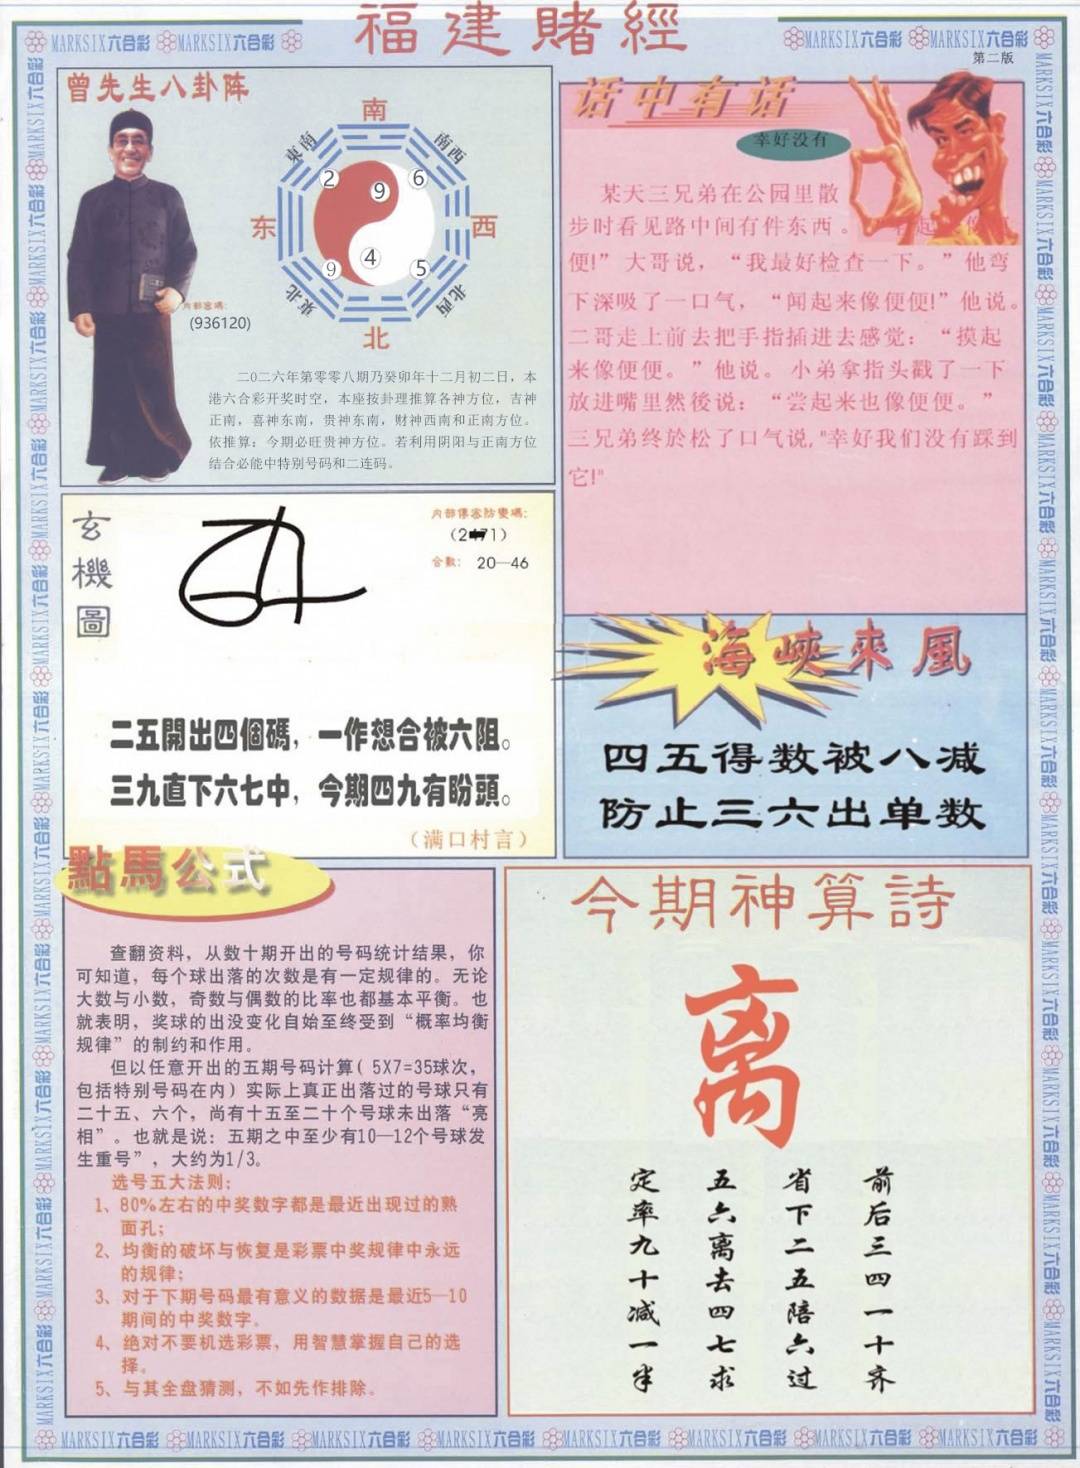 福建賭經
MARKSIX六合彩 MARKSIX六合彩
MARKSIX六合彩 MARKSIX六合彩
第二版
曾先生八卦阵
南
東南
南西
2
9
6
东
西
9
4
5
東北
北西
北
内部密碼:
(936120)
二0二六年第零零八期乃癸卯年十二月初二日，本
港六合彩开奖时空，本座按卦理推算各神方位，吉神
正南，喜神东南，贵神东南，财神西南和正南方位。
依推算：今期必旺贵神方位。若利用阴阳与正南方位
结合必能中特别号码和二连码。
话中有话
幸好没有
某天三兄弟在公园里散
步时看见路中间有件东西。
便!” 大哥说，“我最好检查一下。”他弯
下深吸了一口气，“闻起来像便便!”他说。
二哥走上前去把手指插进去感觉：“摸起
来像便便。”他说。小弟拿指头戳了一下
放进嘴里然後说：“尝起来也像便便。”
三兄弟终於松了口气说,"幸好我们没有踩到
它!"
玄機圖
内部傳密防變碼:
合數: 20—46
二五開出四個碼，一作想合被六阻。
三九直下六七中，今期四九有盼頭。
（满口村言）
海峽來風
四五得数被八减
防止三六出单数
點馬公式
查翻资料，从数十期开出的号码统计结果，你
可知道，每个球出落的次数是有一定规律的。无论
大数与小数，奇数与偶数的比率也都基本平衡。也
就表明，奖球的出没变化自始至终受到“概率均衡
规律”的制约和作用。
但以任意开出的五期号码计算( 5X7=35球次，
包括特别号码在内）实际上真正出落过的号球只有
二十五、六个，尚有十五至二十个号球未出落“亮
相”。也就是说：五期之中至少有10—12个号球发
生重号”，大约为1/3。
选号五大法则：
1、80%左右的中奖数字都是最近出现过的熟
面孔；
2、均衡的破坏与恢复是彩票中奖规律中永远
的规律；
3、对于下期号码最有意义的数据是最近5—10
期间的中奖数字。
4、绝对不要机选彩票，用智慧掌握自己的选
择。
5、与其全盘猜测，不如先作排除。
今期神算詩
离
前后三四一十齐
省下二五陪六过
五六离去四七求
定率九十减一半
MARKSIX六合彩 MARKSIX六合彩 MARKSIX六合彩 MARKSIX六合彩 MARKSIX六合彩 MARKSIX六合彩 MARKSIX六合彩 MARKSIX六合彩